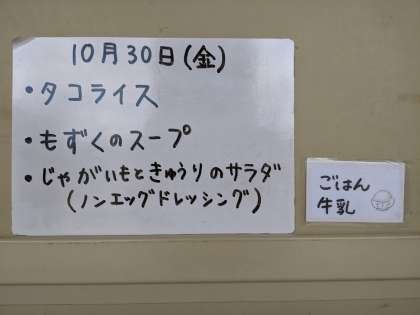 10月30日(金)
・タコライス
・もずくのスープ
・じゃがいもときゅうりのサラダ
(ノンエッグドレッシング)
ごはん
牛乳